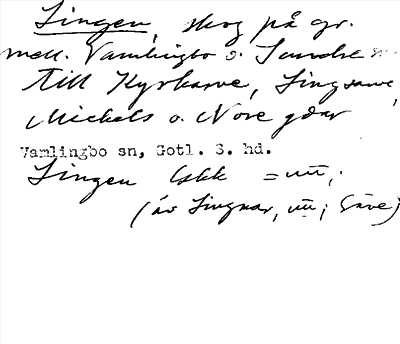 Lingen, skog på gr.
mell. Vamlingbo o. Sundre
till Kyrkarve, Lingsarve,
Michels o. Nore gdar
Vamlingbo sn, Gotl. S. hd.
Lingen
(äv Lingnar, Säve)